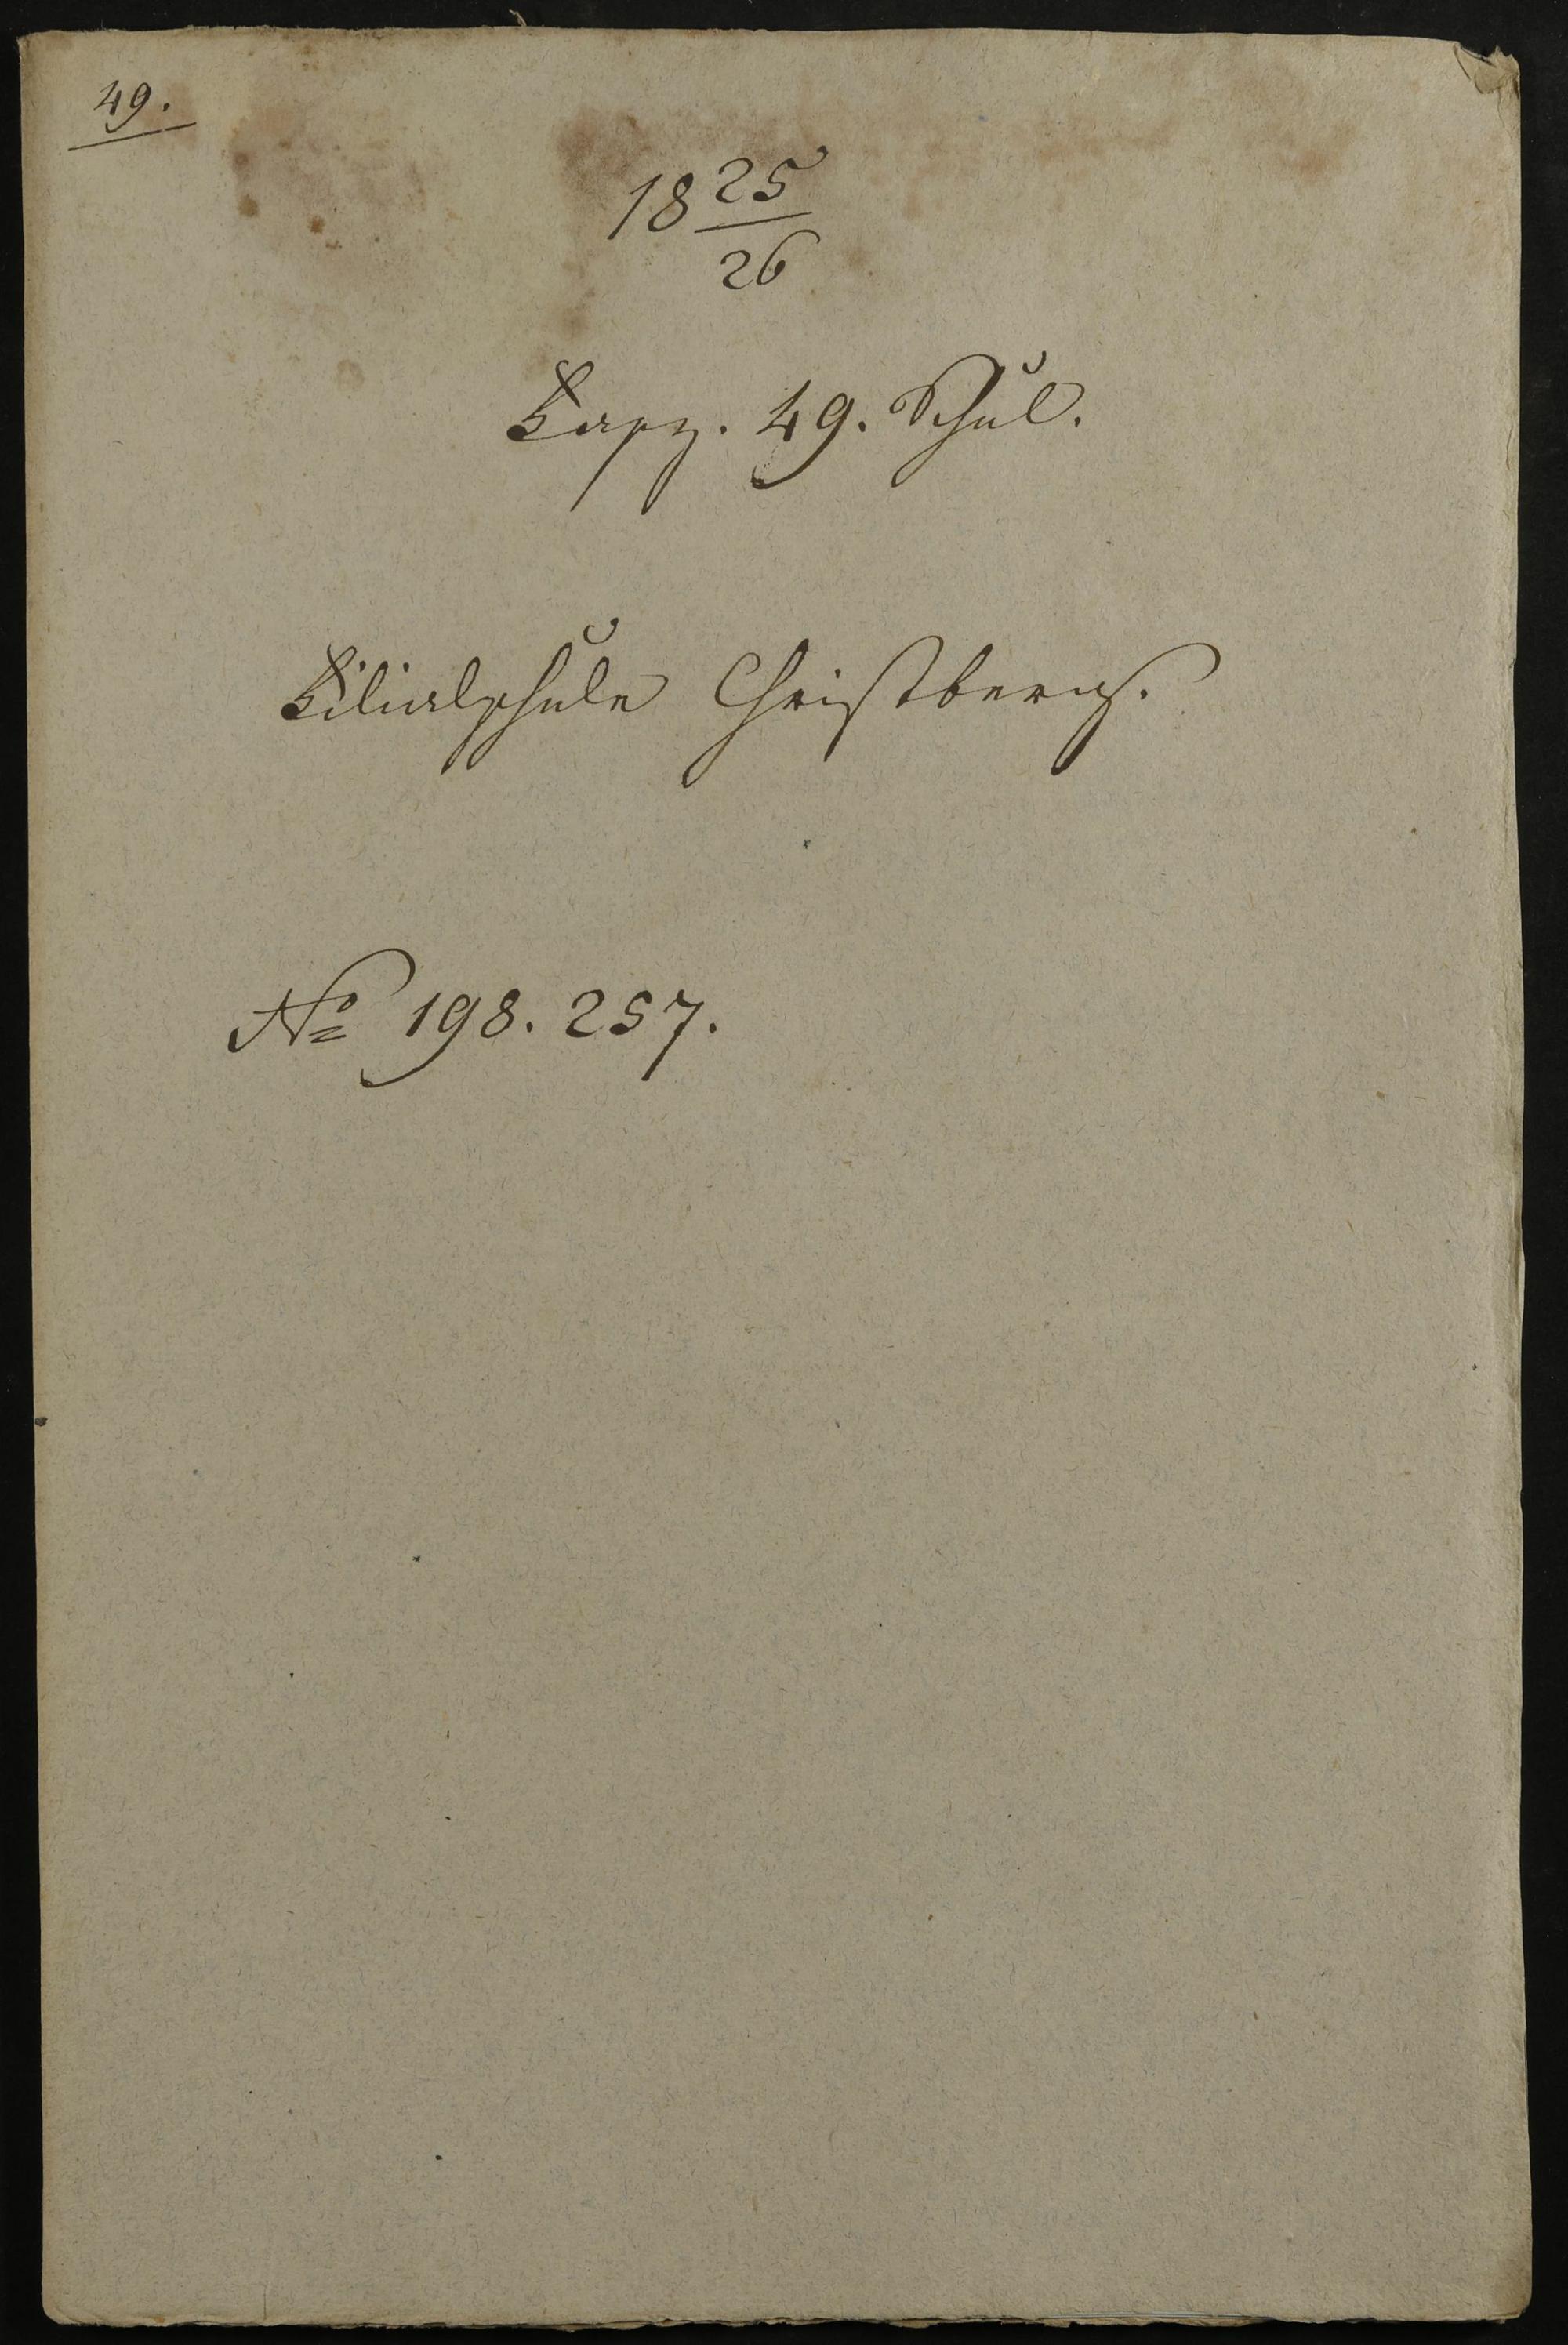 49.
18 25/26
Fasz. 49. Schul.
Filialschule Christberg.
No 198. 257.